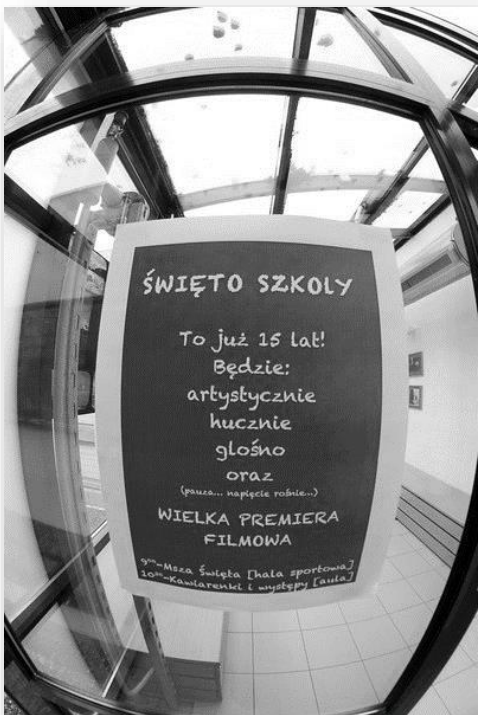 ŚWIĘTO SZKOLY
To już 15 lat!
Będzie:
artystycznie
hucznie
glośno
oraz
(pauza... napięcie rośnie...)
WIELKA PREMIERA
FILMOWA
9⁰⁰-Msza Święta [hala sportowa]
10³⁰-Kawiarenki i występy [aula]